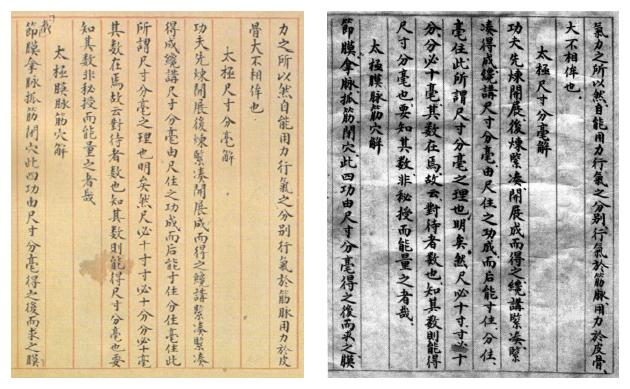 力之所以然自能用力行氣之分別行氣於筋脉用力於皮
骨大不相侔也
太極尺寸分毫解
功夫先煉開展後煉緊凑開展成而得之纔講緊凑緊凑
得成纔講尺寸分毫由尺住之功成而后能寸住分住毫住此
所謂尺寸分毫之理也明矣然尺必十寸寸必十分分必十毫
其数在焉故云對待者数也知其数則能得尺寸分毫也要
知其数非秘授而能量之者哉
太極膜脉筋穴解
節膜拿脉抓筋閉穴此四功由尺寸分毫得之後而求之膜
氣力之所以然自能用力行氣之分別行氣於筋脉用力於皮骨
大不相侔也
太極尺寸分毫解
功夫先煉開展後煉緊凑開展成而得之纔講緊凑緊
凑得成纔講尺寸分毫由尺住之功成而后能寸住分住
毫住此所謂尺寸分毫之理也明矣然尺必十寸寸必十
分分必十毫其数在焉故云對待者数也知其数則能得
尺寸分毫也要知其数非秘授而能量之者哉
太極膜脉筋穴解
節膜拿脉抓筋閉穴此四功由尺寸分毫得之後而求之膜